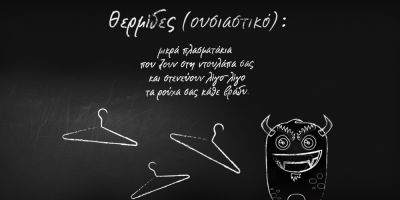 θερμίδες (ουσιαστικό):
μικρά πλασματάκια
που ζουν στη ντουλάπα σας
και στενεύουν λίγο-λίγο
τα ρούχα σας κάθε βράδυ.